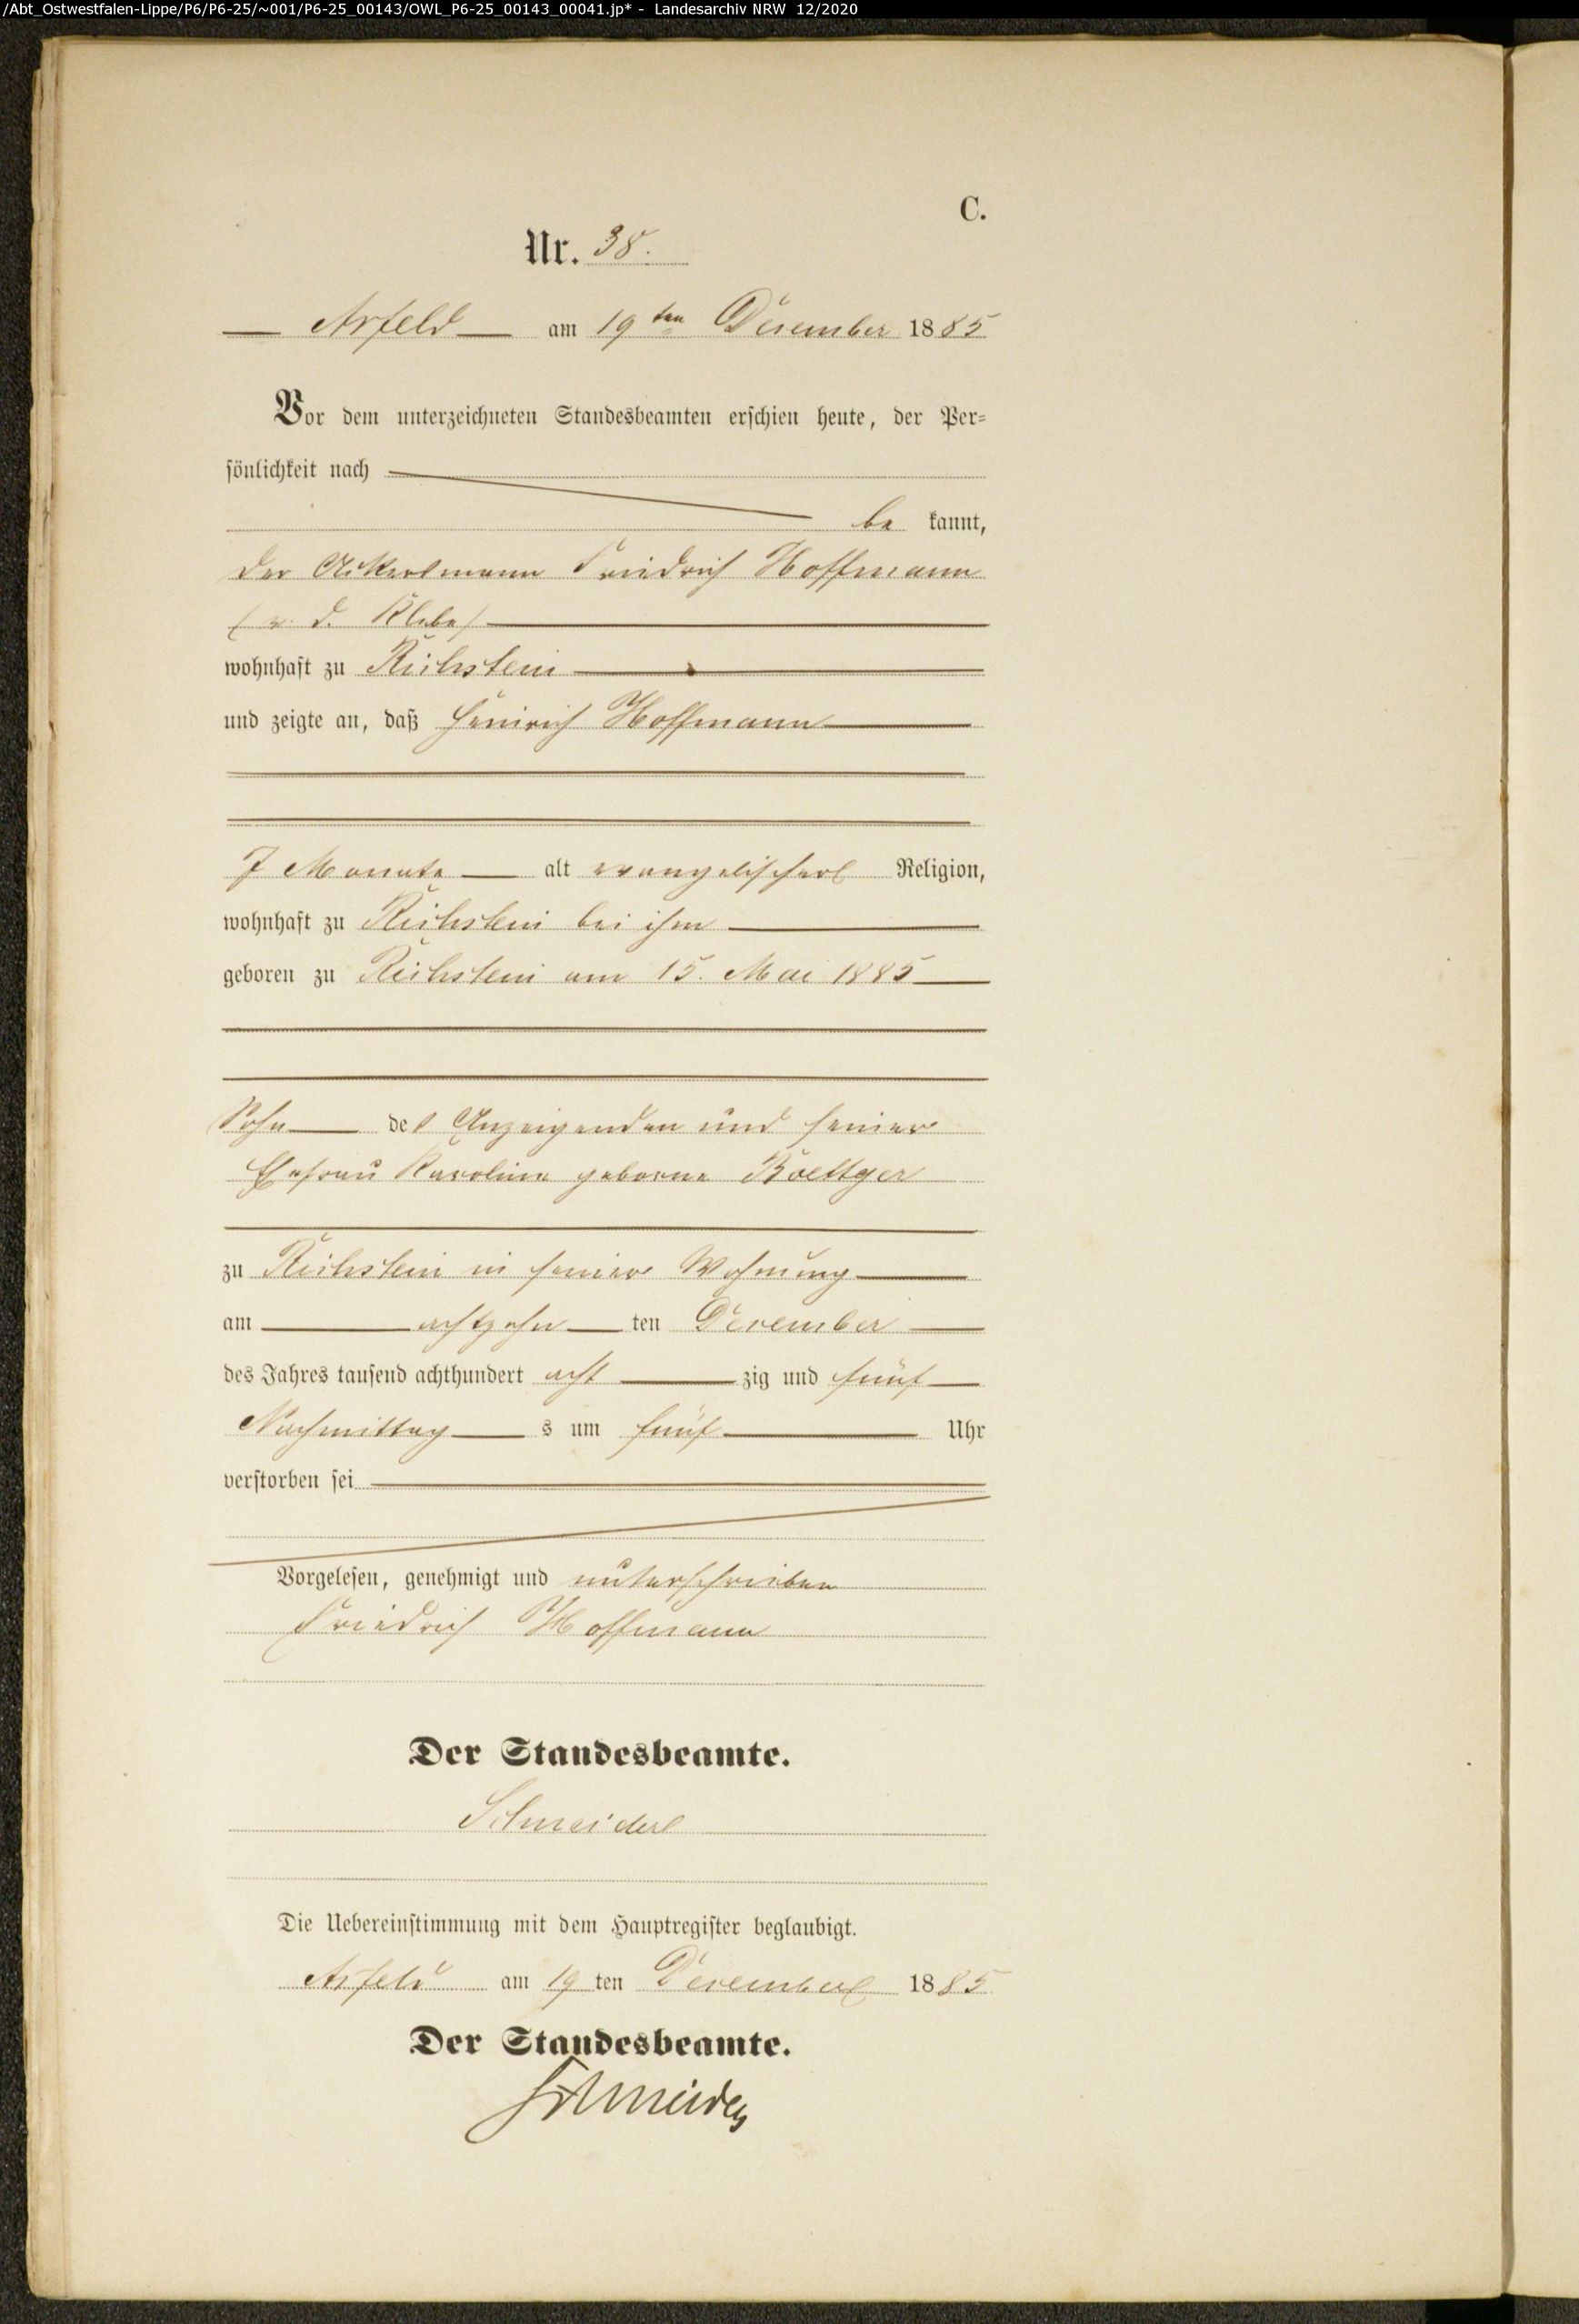 /Abt_Ostwestfalen-Lippe/P6/P6-25/~001/P6-25_00143/OWL_P6-25_00143_00041.jp* - Landesarchiv NRW 12/2020
C.
Nr. 38.
Arfeld am 19ten December 1885
Vor dem unterzeichneten Standesbeamten erschien heute, der Per-
sönlichkeit nach
be kannt,
der Ackersmann Friedrich Hoffmann
(v. d. Klebe)
wohnhaft zu Richstein
und zeigte an, daß Heinrich Hoffmann
7 Monate alt evangelischer Religion,
wohnhaft zu Richstein bei ihm
geboren zu Richstein am 15. Mai 1885
Sohn des Anzeigenden und seiner
Ehefrau Karoline geborne Boettger
zu Richstein in seiner Wohnung
am achtzehn ten December
des Jahres tausend achthundert acht zig und fünf
Nachmittag s um fünf Uhr
verstorben sei
Vorgelesen, genehmigt und unterschrieben
Friedrich Hoffmann
Der Standesbeamte.
Schneider
Die Uebereinstimmung mit dem Hauptregister beglaubigt.
Arfeld am 19 ten December 1885
Der Standesbeamte.
Schneider